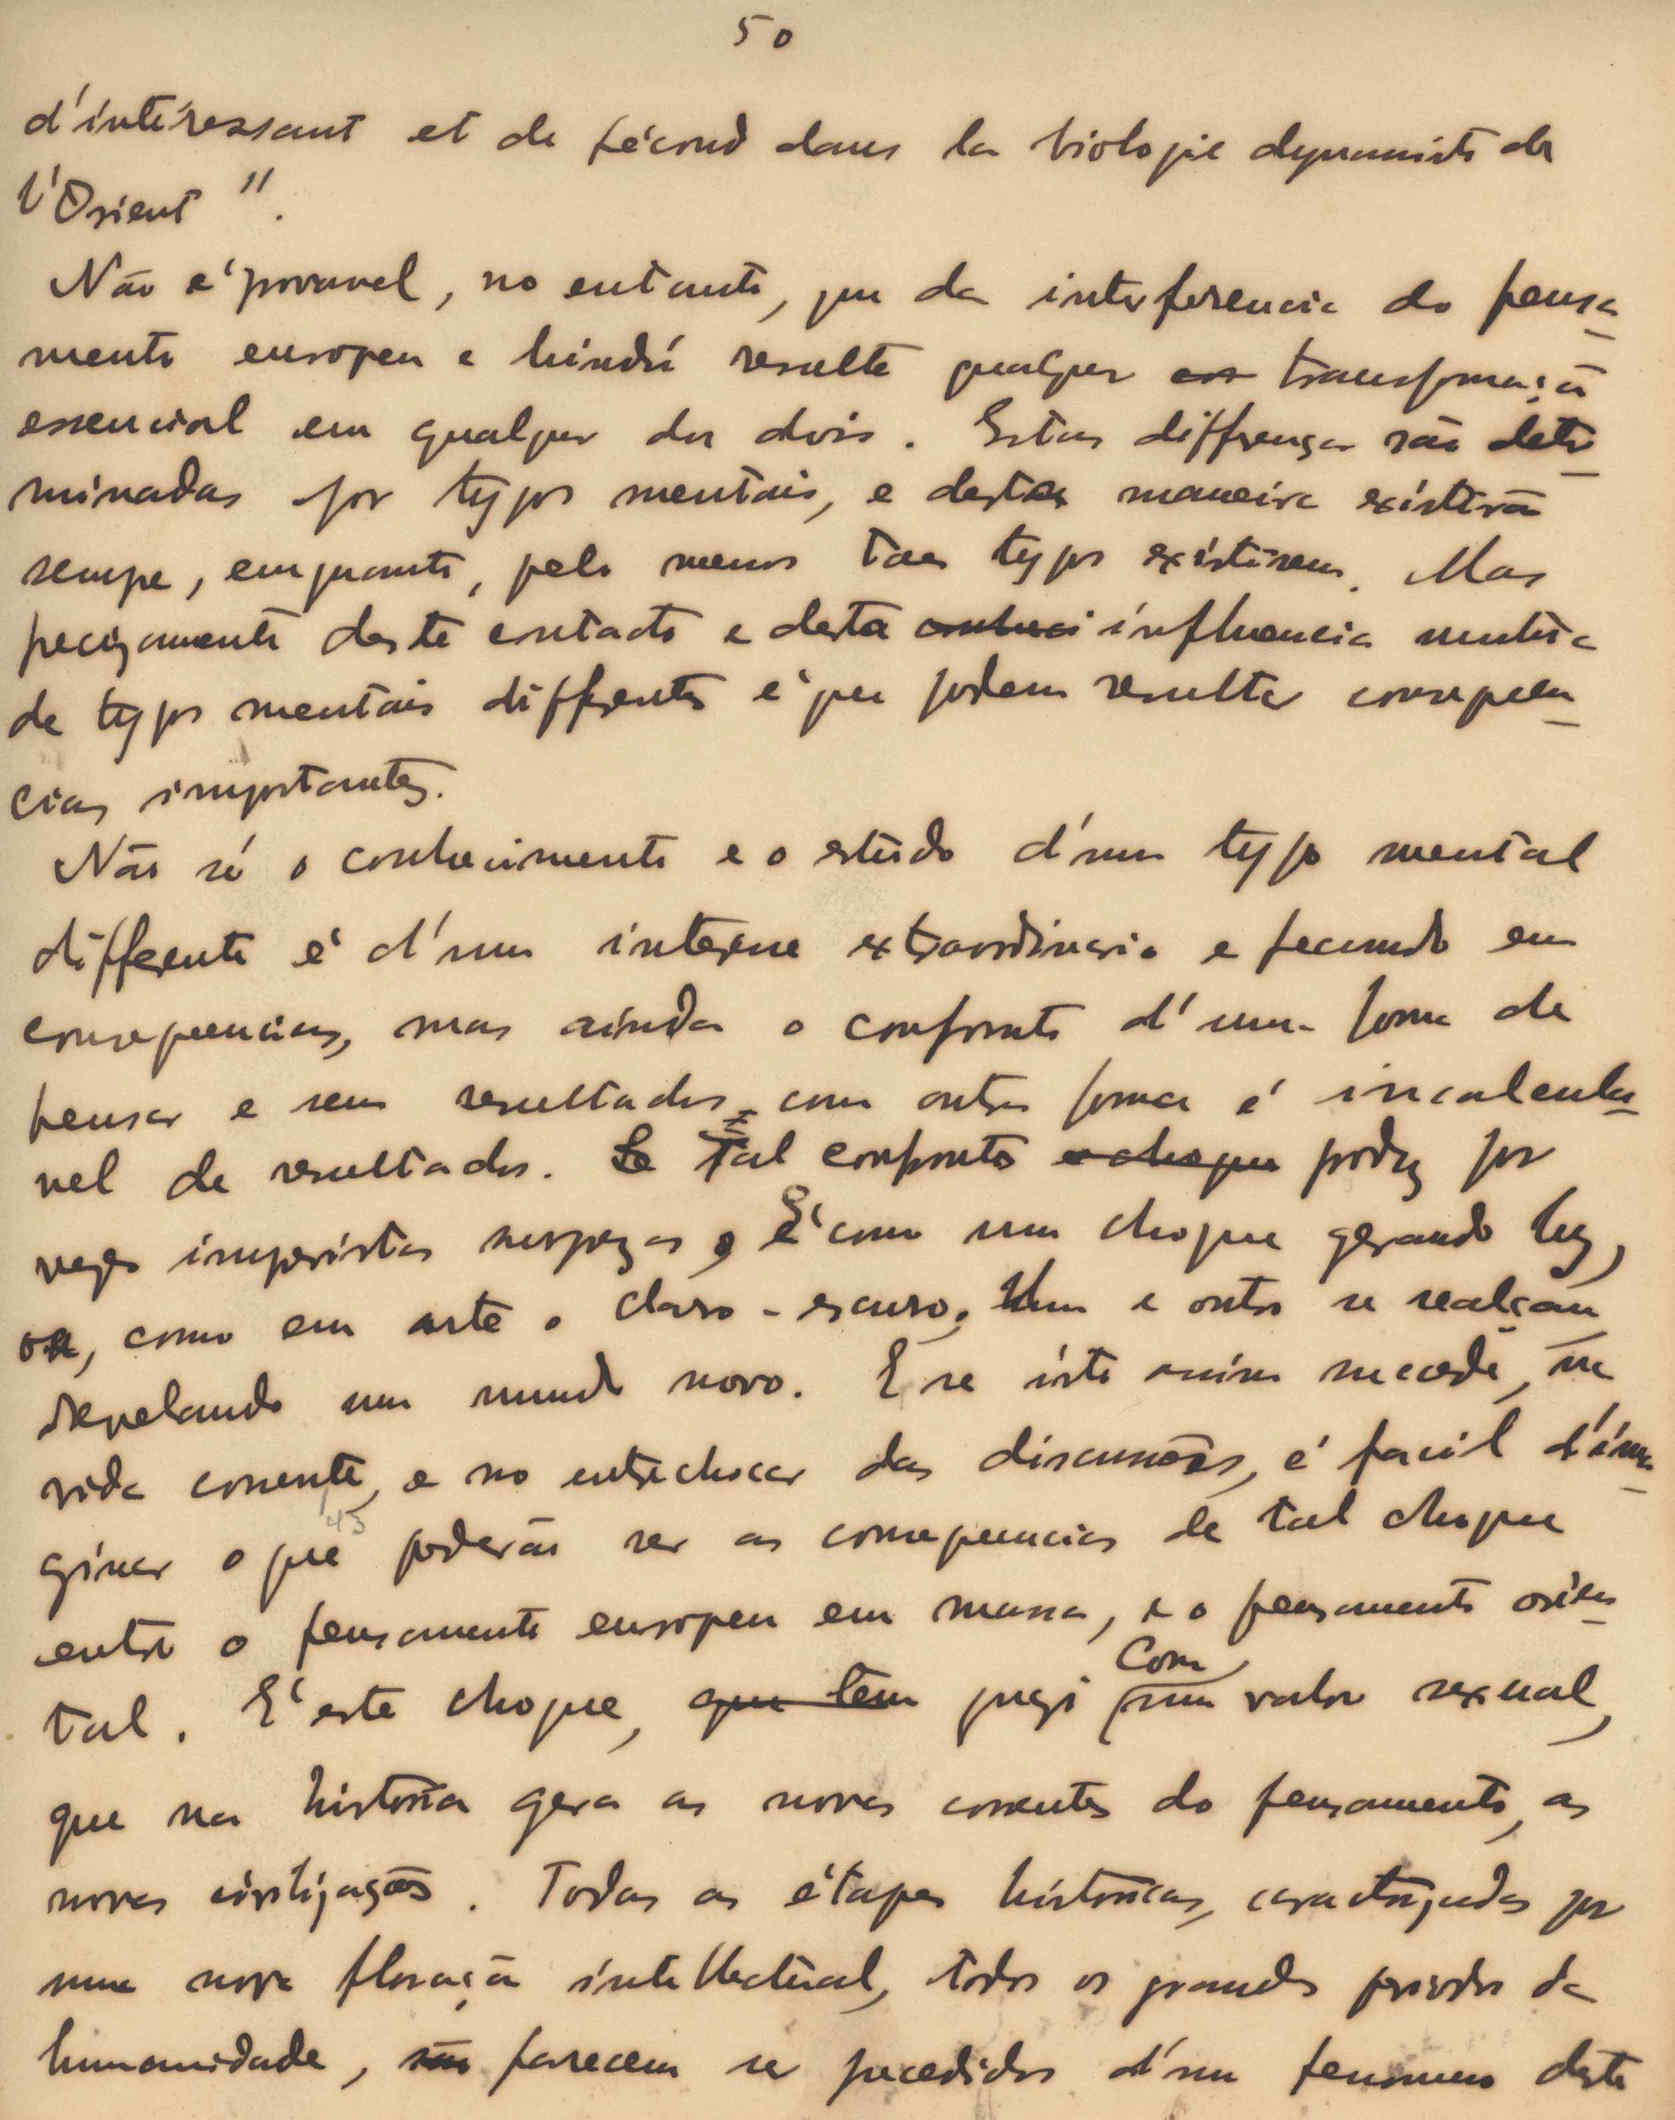 50
d'intéressant et de fécond dans la biologie dynamiste de
l'Orient".
Não é provavel, no entanto, que da interferencia do pensa-
mento europeu e hindú resulte qualquer transformação
essencial em qualquer dos dois. Estas differenças são deter-
minadas por typos mentais, e desta maneira existirão
sempre, emquanto, pelo menos taes typos existirem. Mas
precizamente deste contacto e desta influencia mutua
de typos mentais differentes é que podem resultar consequen-
cias importantes.
Não só o conhecimento e o estudo d'um typo mental
differente é d'um interesse extraordinario e fecundo em
consequencias, mas ainda o confronto d'uma forma de
pensar e seus resultados com outra forma é incalcula-
vel de resultados. Tal confronto produz por
vezes imprevistas surprezas, É como um choque gerando luz,
ou, como em arte o claro-escuro. Um e outro se realçam
revelando um mundo novo. E se isto assim succede, na
vida corrente, e no entrechocar das discussões, é facil d'ima-
45
ginar o que poderão ser as consequencias de tal choque
entre o pensamento europeu em massa, e o pensamento orien-
tal. É este choque, que tem quazi com um valor sexual,
que na historia gera as novas correntes do pensamento, as
novas civilizações. Todas as étapes historicas, caracterizadas por
uma nova floração intellectual, todos os grandes periodos da
humanidade, são parecem ser precedidos d'um fenomeno deste